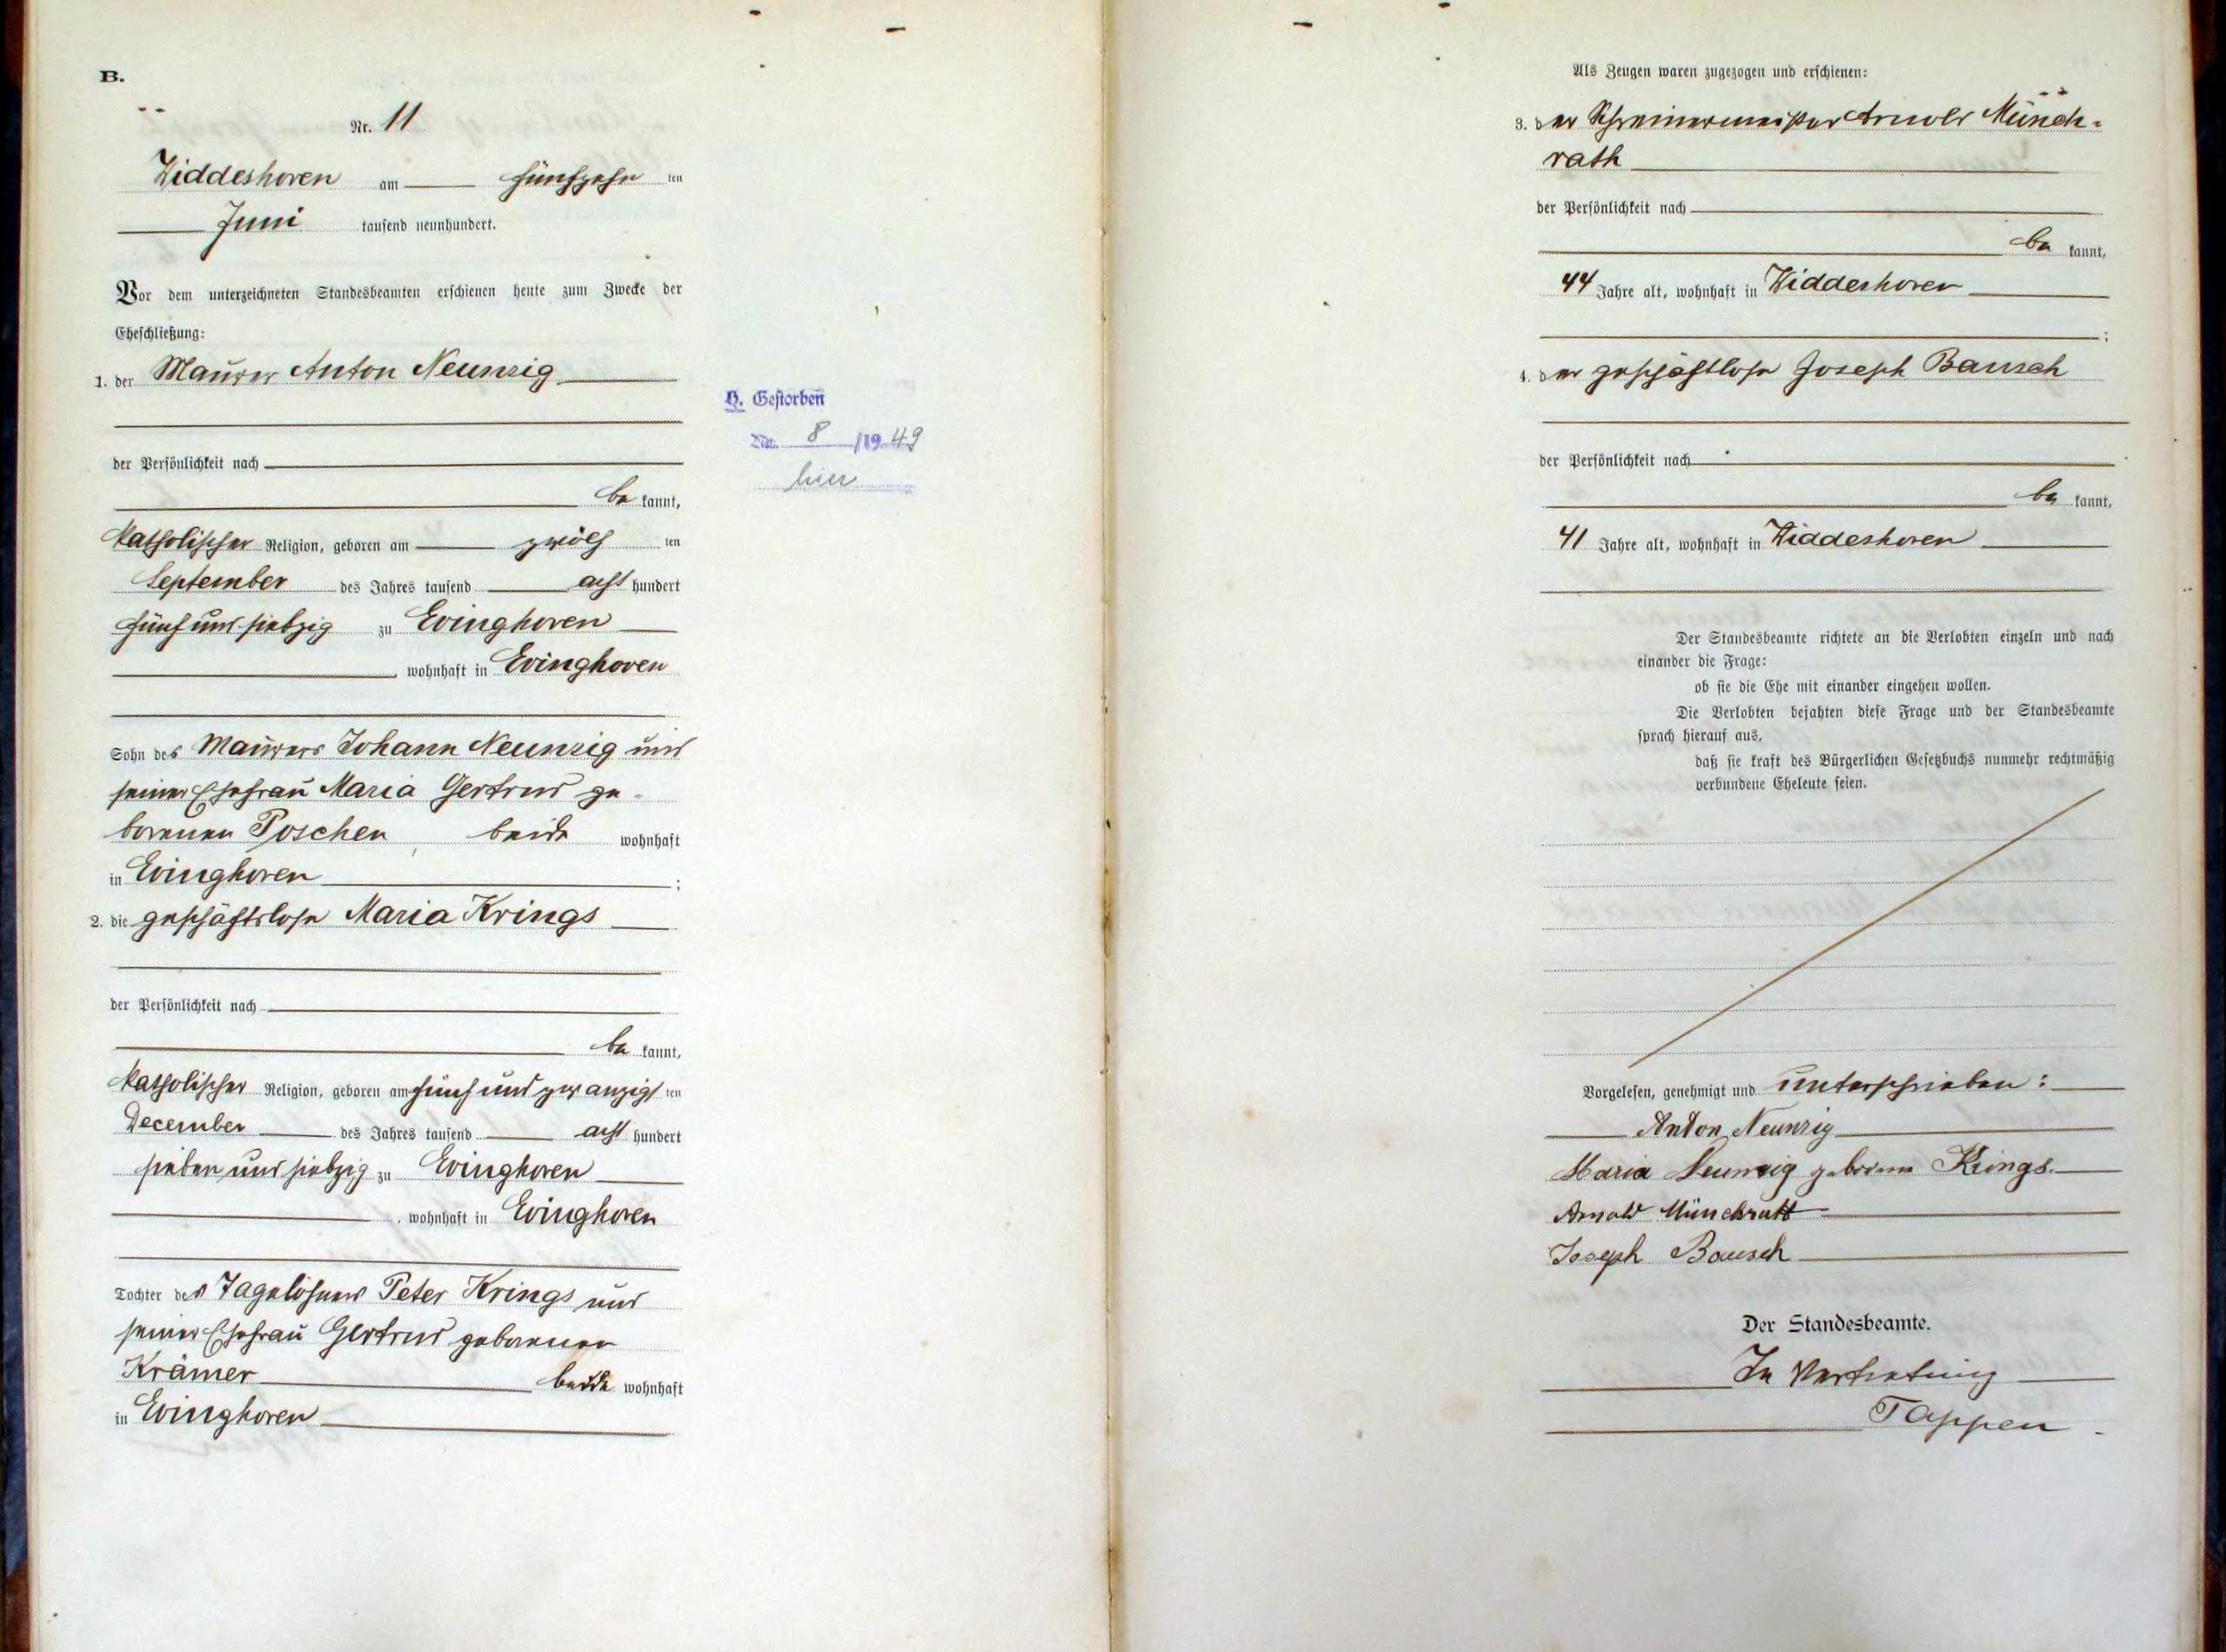 B.
Nr. 11
Widdeshoven am fünfzehn ten
Juni tausend neunhundert.
Vor dem unterzeichneten Standesbeamten erschienen heute zum Zwecke der
Eheschließung:
1. der Maurer Anton Neunzig
der Persönlichkeit nach
be kannt,
katholischer Religion, geboren am zwölf ten
September des Jahres tausend acht hundert
fünf und siebzig zu Evinghoven
, wohnhaft in Evinghoven
Sohn des Maurers Johann Neunzig und
seiner Ehefrau Maria Gertrud ge-
borenen Poschen beide wohnhaft
in Evinghoven ;
2. die geschäftslose Maria Krings
der Persönlichkeit nach
be kannt,
katholischer Religion, geboren am fünf und zwanzigs ten
December des Jahres tausend acht hundert
sieben und siebzig zu Evinghoven
, wohnhaft in Evinghoven
Tochter des Tagelöhners Peter Krings und
seiner Ehefrau Gertrud geborenen
Krämer beide wohnhaft
in Evinghoven
H. Gestorben
Nr. 8 /19 49
hier
Als Zeugen waren zugezogen und erschienen:
3. der Schreinermeister Arnold Münch-
rath
der Persönlichkeit nach
be kannt,
44 Jahre alt, wohnhaft in Widdeshoven
;
4. der geschäftlose Joseph Bausch
der Persönlichkeit nach
be kannt,
41 Jahre alt, wohnhaft in Widdeshoven
Der Standesbeamte richtete an die Verlobten einzeln und nach
einander die Frage:
ob sie die Ehe mit einander eingehen wollen.
Die Verlobten bejahten diese Frage und der Standesbeamte
sprach hierauf aus,
daß sie kraft des Bürgerlichen Gesetzbuchs nunmehr rechtmäßig
verbundene Eheleute seien.
Vorgelesen, genehmigt und unterschrieben:
Anton Neunzig
Maria Neunzig geborene Krings.
Arnold Münchrath
Joseph Bausch
Der Standesbeamte.
In Vertretung
Tappen.